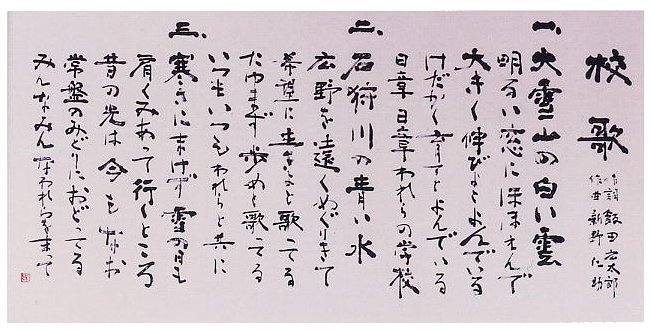 校歌
作詞 飯田 太郎
作曲 新野仁助
一、大雪山の白い雲
明るい窓にほほえんで
大きく伸びよとよんでいる
けだかく育てとよんでいる
日章 日章 われらの学校
二、石狩川の青い水
広野を遠くめぐりきて
希望に生きよと歌ってる
たゆまず歩めと歌ってる
いつもいつもわれらと共に
三、寒さにまけず雪の日も
肩くみあって行くところ
昔の光は今もなお
常盤のみどりにおどってる
みんなみんなわれらをまって